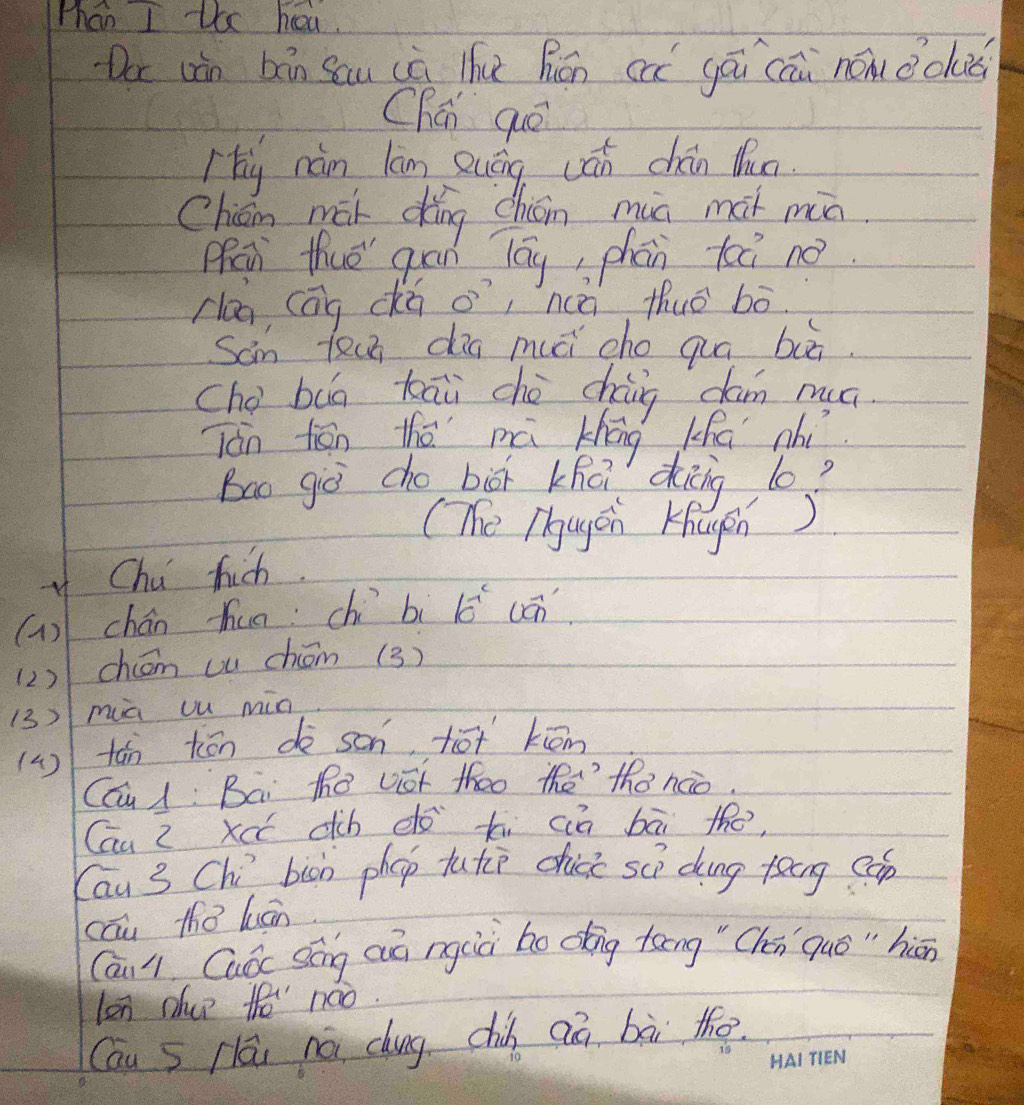 Phần I Đọc hiểu.
Đọc văn bản sau và thực hiện các yêu cầu nêu ở dưới
Chốn quê
Mấy năm làm ruộng vẫn chân thua.
Chiêm mất đằng chiêm mùa mất mùa.
Phần thuế quan Tây, phần trả nợ.
Nửa công đứa ở, nửa thuê bò.
Sớm trưa dưa muối cho qua bữa.
Chợ búa trầu chè chẳng dám mua.
Tần tiện thế mà không khá nhỉ.
Bao giờ cho biết khỏi đường lo?
(Thơ Nguyễn Khuyến)
Chú thích.
(1) chân thua: chỉ bị lỗ vốn.
(2) chiêm vụ chiêm (3)
(3) mùa vụ mùa
(4) tần tiện dè sẻn, tiết kiệm
Câu 1: Bài thơ viết theo thể thơ nào.
Câu 2 Xác định đề tài của bài thơ,
Câu 3 Chỉ biện pháp tu từ được sử dụng trong cặp
câu thơ luận.
Câu 4. Cuộc sống của người lao động trong "Chốn quê" hiện
lên như thế nào.
Câu 5 Nêu nội dung chính của bài thơ.
HAI TIEN